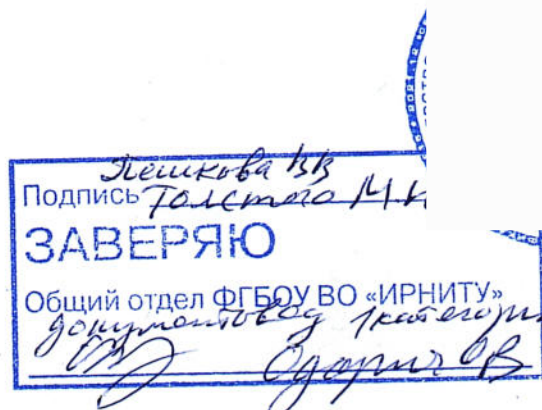 Пешкова ВВ
Подпись Толстого М.И
ЗАВЕРЯЮ
Общий отдел ФГБОУ ВО «ИРНИТУ»
документовед 1 категории
ОВ